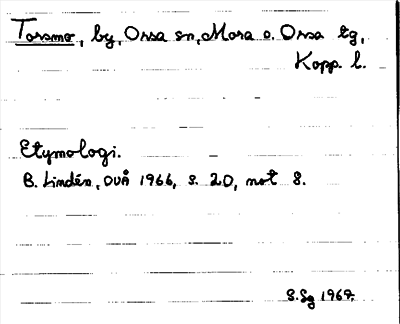 Torsmo, by, Orsa sn, Mora o. Orsa tg,
Kopp. l.
Etymologi.
B. Lindén, DUÅ 1966, s. 20, not 8.
S.Sg 1967.